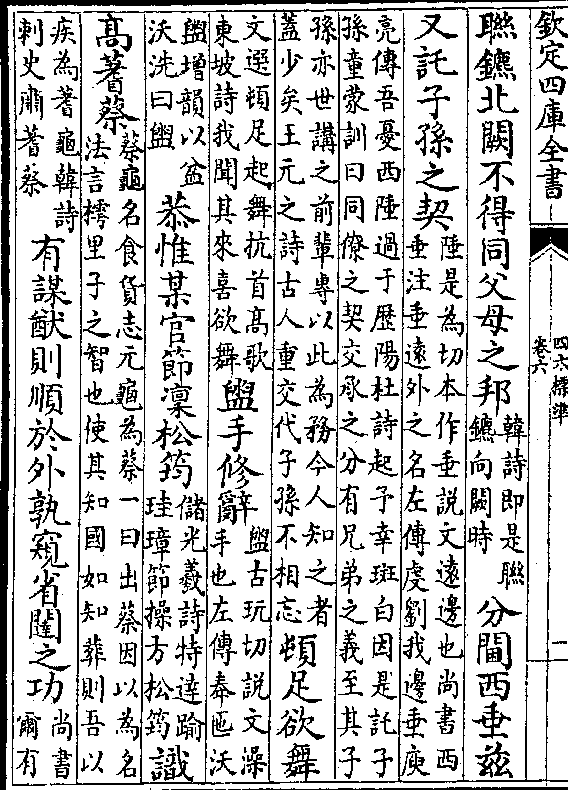 欽定四庫全書
四六標準
卷六
一
聯鑣北闕不得同父母之邦
韓詩即是聯
鑣向闕時
分閫西垂茲
又託子孫之契
陲是為切本作垂說文遠邊也尚書西
垂注垂遠外之名左傳虔劉我邊垂庾
亮傳吾憂西陲過于歷陽杜詩起予幸斑白因是託子
孫童蒙訓曰同僚之契交承之分有兄弟之義至其子
孫亦世講之前輩專以此為務今人知之者
蓋少矣王元之詩古人重交代子孫不相忘
頓足欲舞
文選頓足起舞抗首高歌
東坡詩我聞其來喜欲舞
盥手修辭
盥古玩切說文澡
手也左傳奉匜沃
盥增韻以盆
沃洗曰盥
恭惟某官節凜松筠
儲光羲詩特達踰
珪璋節操方松筠
識
高蓍蔡
蔡龜名食貨志元龜為蔡一曰出蔡因以為名
法言樗里子之智也使其知國如知葬則吾以
疾為蓍龜韓詩
刺史肅蓍蔡
有謀猷則順於外孰窺省闥之功
尚書
爾有